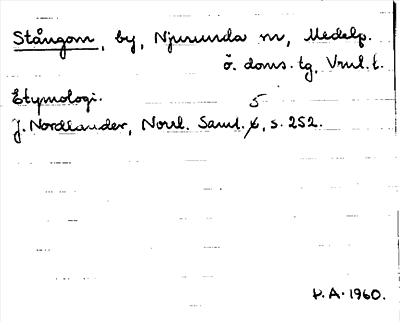 Stångom, by, Njurunda sn, Medelp.
ö. doms. tg, Vrul. l.
Etymologi.
J. Nordlander, Norrl. Saml. 5, s. 252.
P.A. 1960.